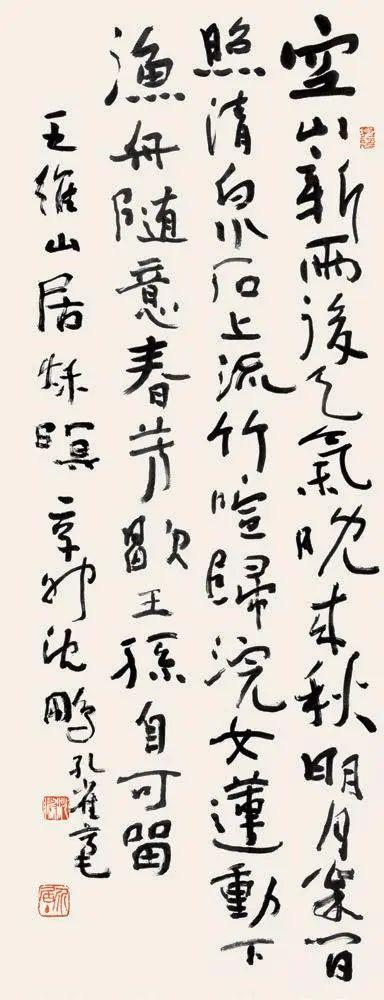 空山新雨後天氣晚来秋明月松间
照清泉石上流竹喧歸浣女蓮動下
漁舟随意春芳歇王孫自可留
王維山居秋暝辛卯沈鵬孔雀毫